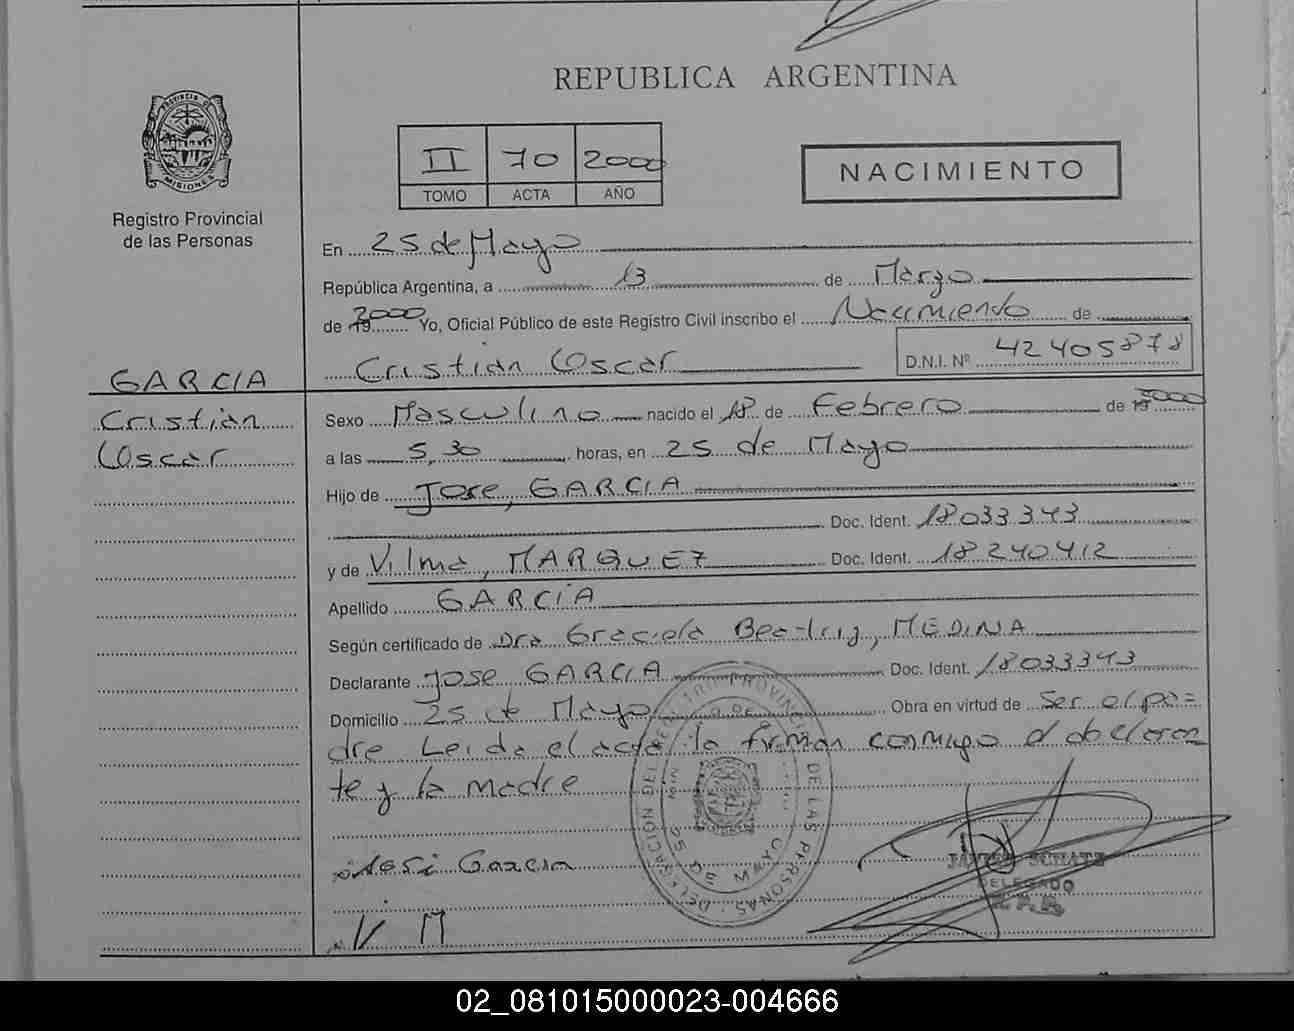 REPUBLICA ARGENTINA
PROVINCIA DE
MISIONES
Registro Provincial
de las Personas
II 70 2000
TOMO ACTA AÑO
NACIMIENTO
En 25 de Mayo
República Argentina, a 13 de Marzo
de 19 2000 Yo, Oficial Público de este Registro Civil inscribo el Nacimiento de
Cristian Oscar D.N.I. Nº 42405878
GARCIA
Cristian
Oscar
Sexo Masculino nacido el 18 de Febrero de 19 2000
a las 5,30 horas, en 25 de Mayo
Hijo de Jose, GARCIA
Doc. Ident. 18033343
y de Vilma, MARQUEZ Doc. Ident. 18240412
Apellido GARCIA
Según certificado de Dra Graciela Beatriz, MEDINA
Declarante Jose GARCIA Doc. Ident. 18033343
Domicilio 25 de Mayo Obra en virtud de Ser el pa=
dre Leida el acta la firman conmigo el declaran
te y la madre
José Garcia
V M
DELEGACIÓN DEL REGISTRO PROVINCIAL DE LAS PERSONAS
25 DE MAYO
JAVIER SCHATZ
DELEGADO
R.P.P.
02_081015000023-004666